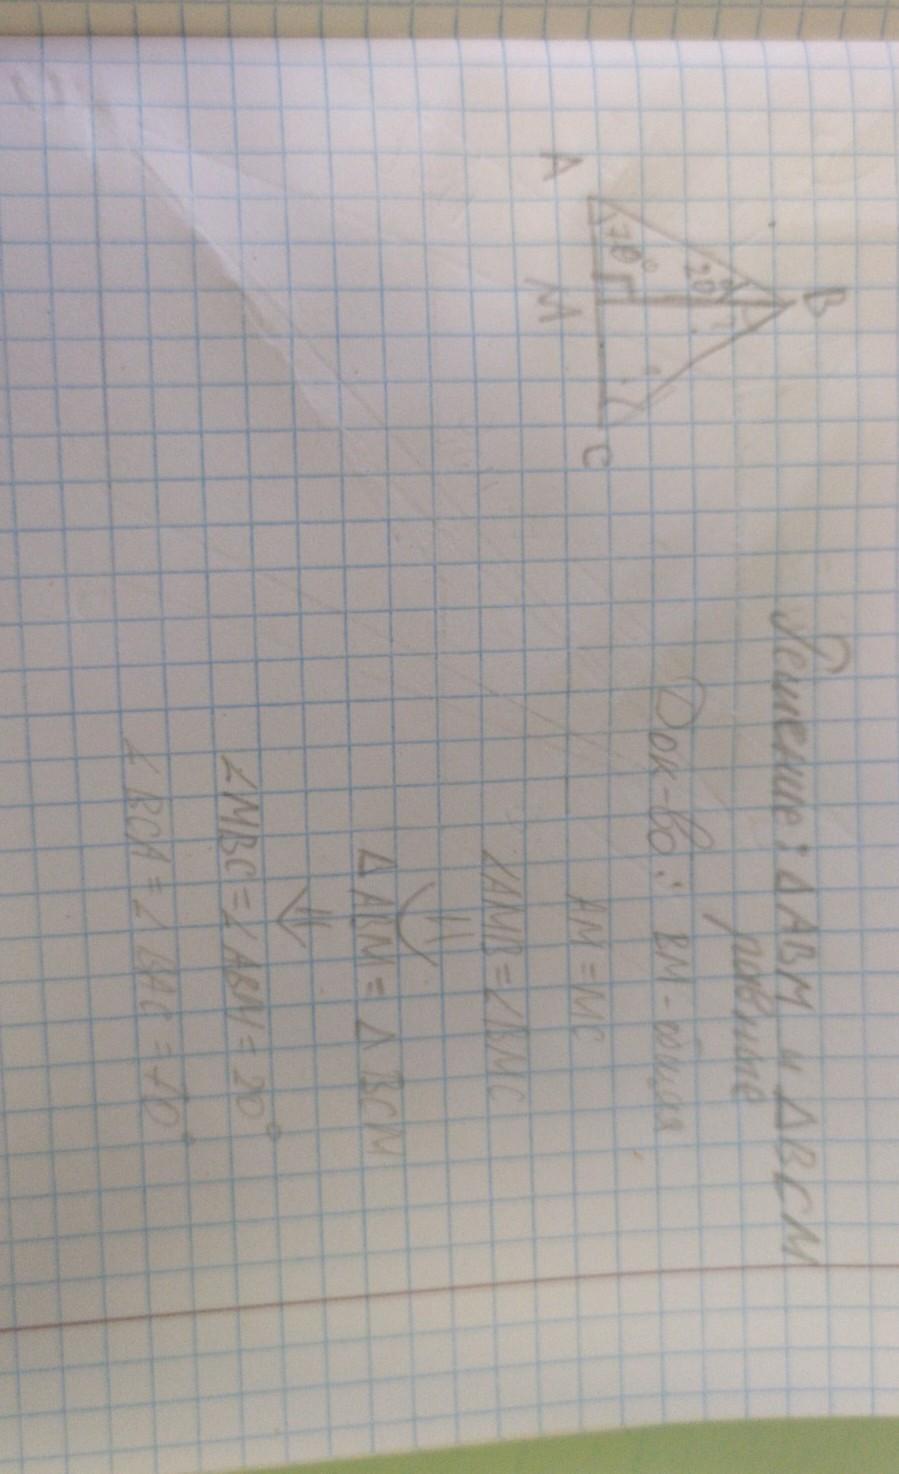 B
20°
70°
A M C
Решение: ΔABM и ΔBCM
равные
Док-во: BM - общая
AM = MC
∠AMB = ∠BMC
⇓
ΔABM = ΔBCM
⇓
∠MBC = ∠ABM = 20°
∠BCA = ∠BAC = 70°